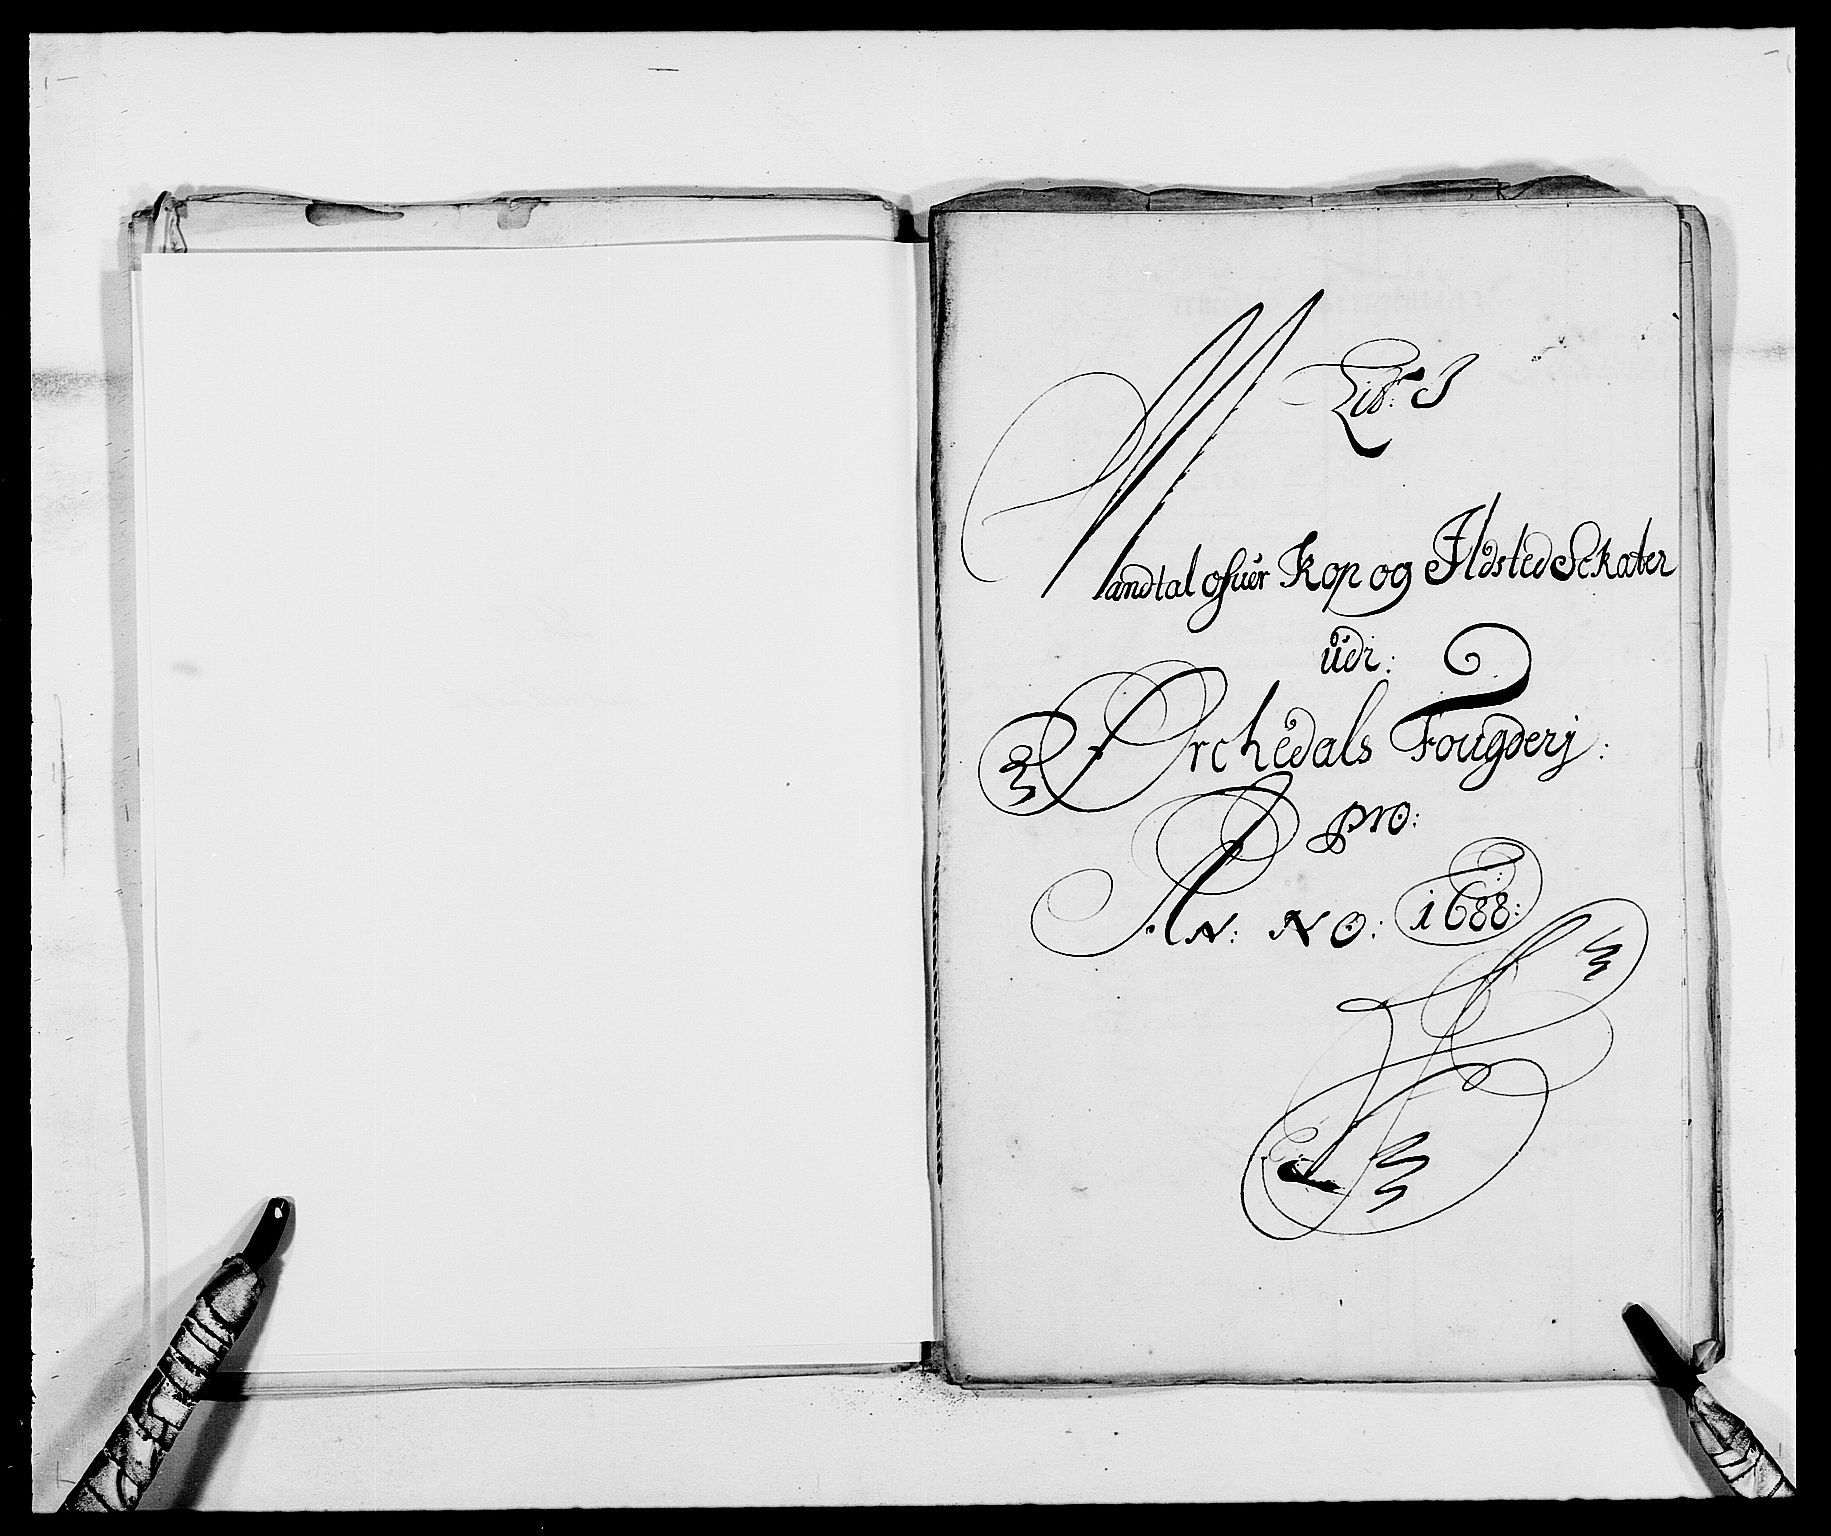 Lit: J
Mandtal ofuer Kop og Ildsted Sckater
udi:
Ørchedals Fougderj:
pro:
AN: NO: 1688: